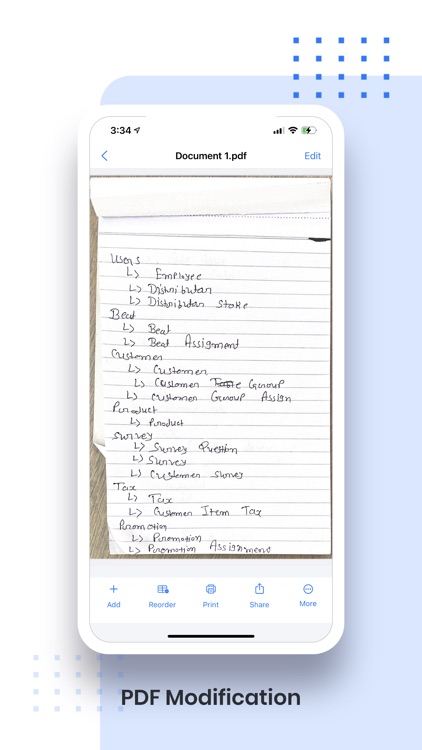 3:34
Document 1.pdf
Edit
Users
↳ Employee
↳ Distributar
↳ Distributar Stoke
Beat
↳ Beat
↳ Beat Assigment
Customer
↳ Customer
↳ Customer Group
↳ Customer Group Assign
Product
↳ Product
Survey
↳ Survey Question
↳ Survey
↳ Customer Survey
Tax
↳ Tax
↳ Customer Item Tax
Promotion
↳ Promotion
↳ Promotion Assignment
Add
Reorder
Print
Share
More
PDF Modification